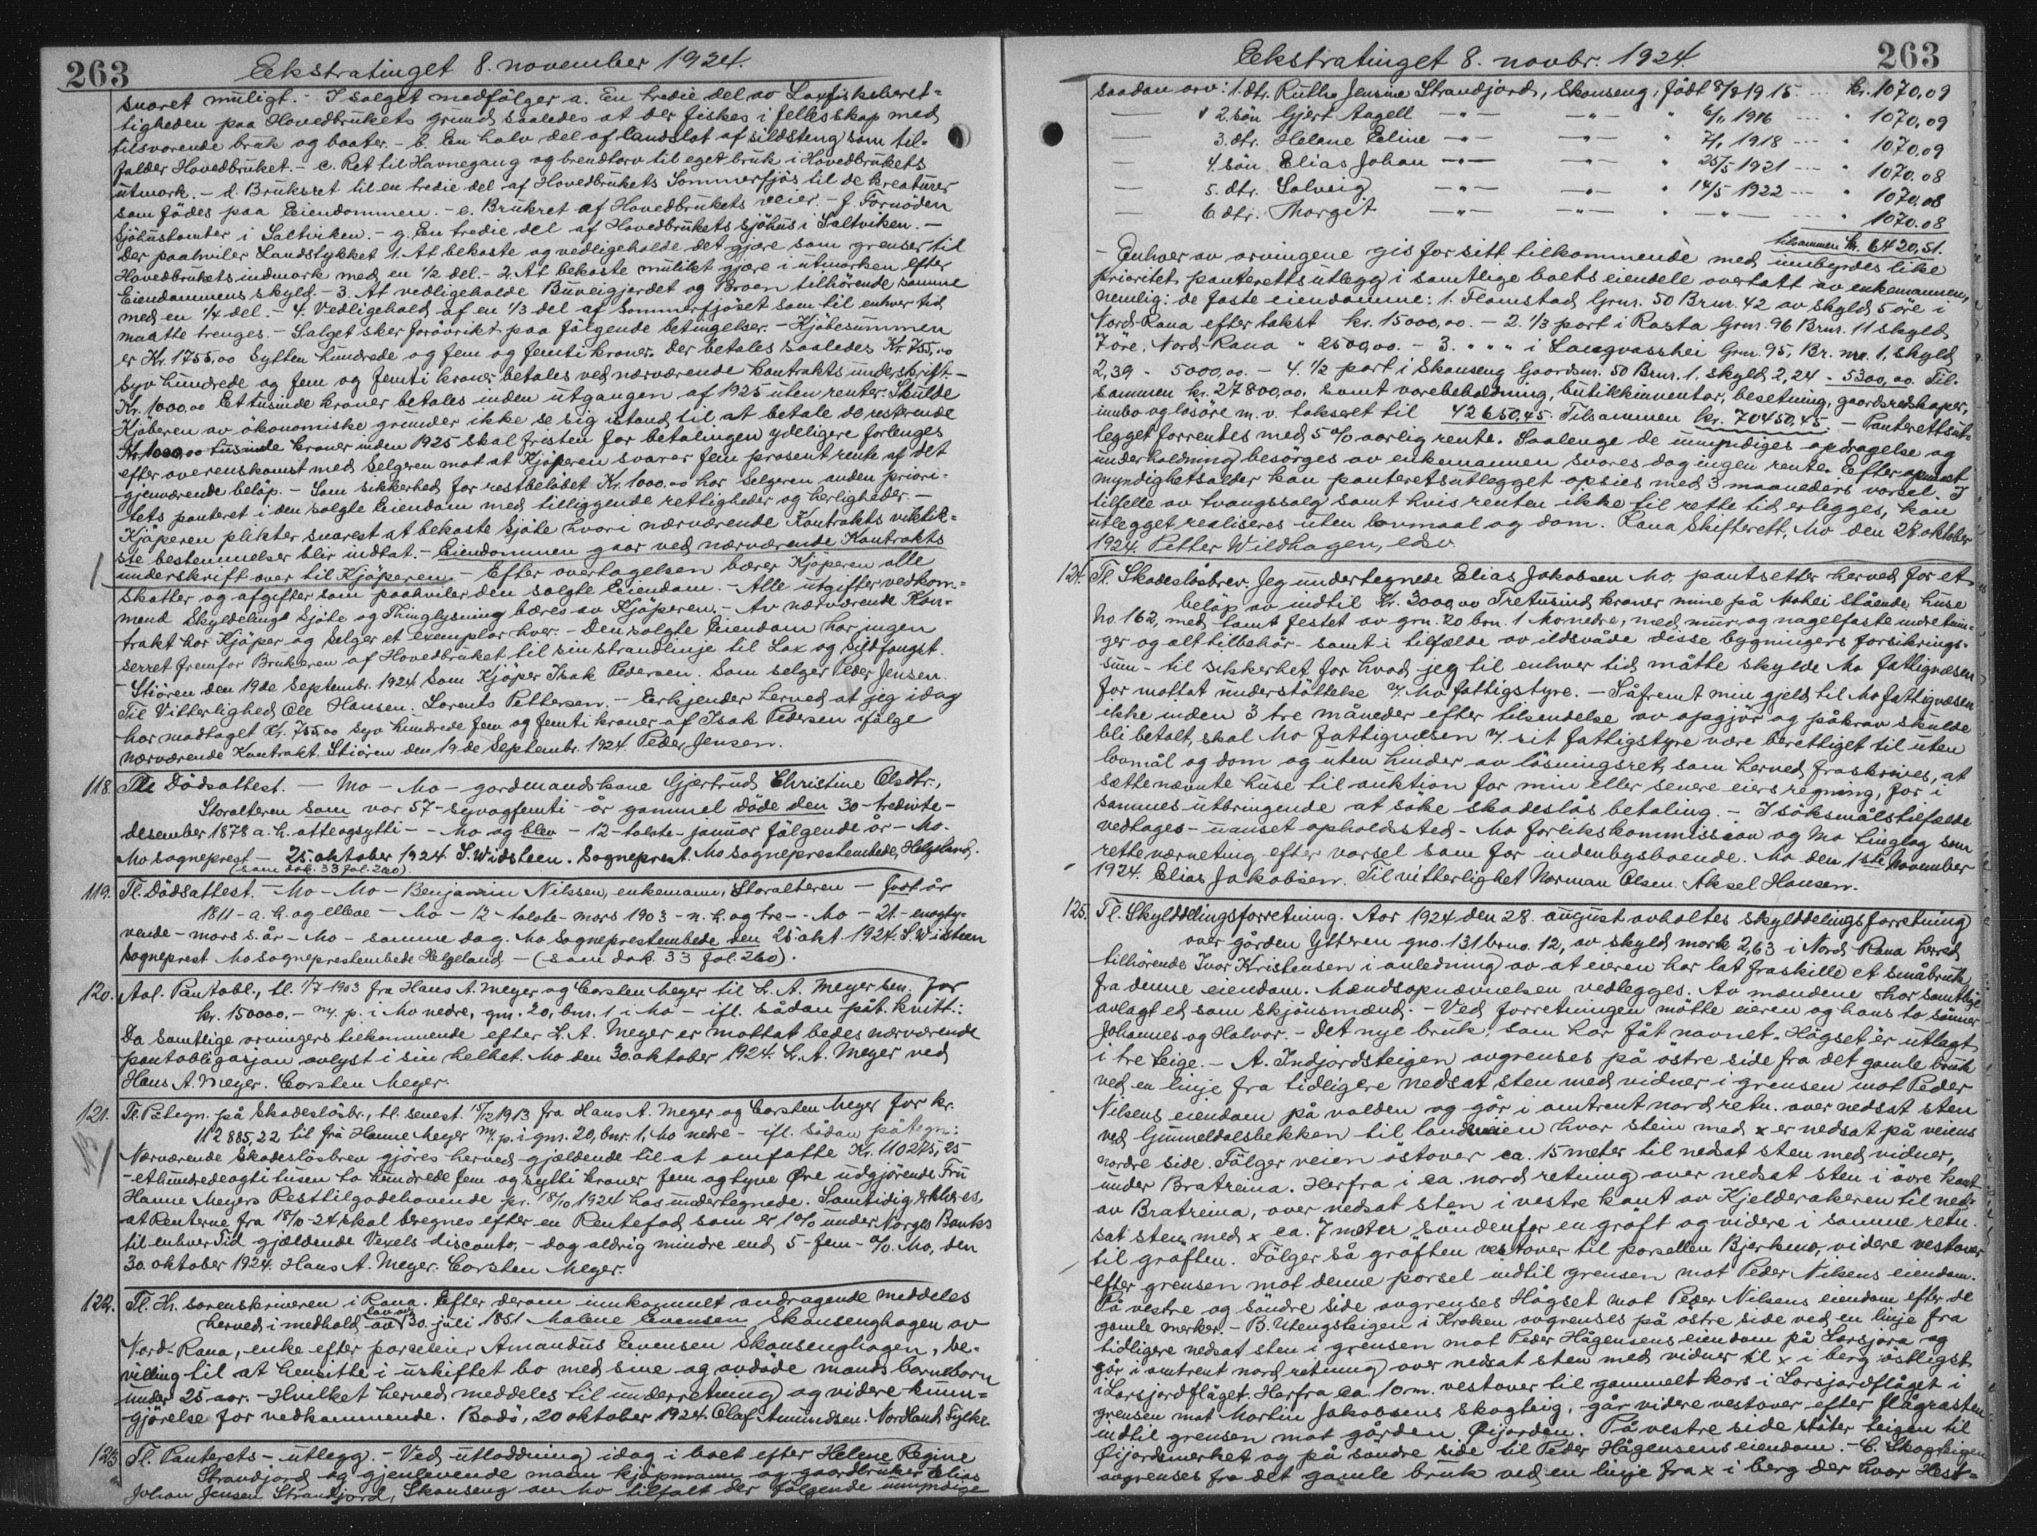 263
Ekstratinget 8. november 1924.
svaret muligt. - I salget medfölger a. En tredie del av Laxfiskeret=
tigheden paa Hovedbrukets grund saaledes at der fiskes i fellesskap med
tilsvarende bruk og baater. - b. En halv del af landslot af sildsteng som til=
falder Hovedbruket. - c. Ret til Havnegang og brendtorv til eget bruk i Hovedbrukets
utmark. - d. Bruksret til en tredie del af Hovedbrukets Sommerfjös til de kreaturer
som födes paa Eiendommen. - e. Brukret af Hovedbrukets veier. - f. Fornöden
Sjöhustomter i Saltviken. - g. En tredie del af Hovedbrukets Sjöhus i Saltviken. -
Der paahviler Landstykket 1. At bekoste og vedligeholde det gjære som grenser til
Hovedbrukets indmark med en 1/2 del. - 2. At bekoste mulikt gjære i utmarken efter
Eiendommens skyld. - 3. At vedligeholde Buveigjerdet og Broen tilhörende samme
med en 1/4 del. - 4. Vedligehold af en 1/3 del af Sommerfjöset som til enhver tid
maatte trenges. - Salget sker forövrikt paa fölgende betingelser. - Kjöbesummen
er Kr. 1755,00 Sytten hundrede og fem og femti kroner. Der betales saaledes Kr. 755,00
syv hundrede og fem og femti kroner betales ved nærværende kontrakts underskrift -
Kr. 1000,00 Et tusinde kroner betales inden utgangen af 1925 uten renter. Skulde
Kjöberen av ökonomiske grunder ikke se sig istand til at betale de resterende
Kr. 1000,00 tusinde kroner inden 1925 skal fristen for betalingen ydeligere forlenges
efter overenskomst med Selgeren mot at Kjöperen svarer fem prosent rente af det
gjenværende belöp. - Som sikkerhed for restbelöbet Kr. 1000.00 har Selgeren anden priori-
tets panteret i den solgte Eiendom med tilliggende retligheder og herligheder. -
Kjöperen plikter snarest at bekoste Sjöte hvori nærværende Kontrakts viktik=
ste bestemmelser blir indtat. - Eiendommen gaar ved nærværende Kontrakts
underskrift over til Kjöperen. - Efter overtagelsen bærer Kjöperen alle
skatter og afgifter som paahviler den solgte Eiendom. - Alle utgifter vedkom=
mend Skyldelingt Sjöte og Thinglysning bæres av Kjöperen. - Av nærværende Kon-
trakt har Kjöper og Selger et exemplar hver. - Den solgte Eiendom har ingen
serret fremfor Brukeren af Hovedbruket til sin strandlinje til Lax og Sildfangst.
- Stiören den 19de Septembr. 1924 Som Kjöper Isak Pedersen. Som selger Peder Jensen.
Til Vitterlighed Ole Hansen. Lorents Pettersen. - Erkjender herved at jeg idag
har modtaget Kr. 755,00 syv hundrede fem og femti kroner af Isak Pedersen ifölge
nærværende Kontrakt. Stiören den 19 de Septembr. 1924. Peder Jensen.
118. Tl. Dödsattest. - Mo - Mo - gardmandskone Gjertrud Christine Olsdtr.,
Storalteren som var 57 - syvogfemti - år gammel döde den 30 - tredivte -
desember 1878 a. h. atteogsytti - - Mo og blev - 12 - tolvte - januar fölgende år - Mo.
Mo sogneprest - 25. oktober 1924. S. Widsteen. Sogneprest. Mo sogneprestembede, Helgeland.
(som dok. 33 fol. 260)
119. Tl. Dödsattest. - Mo - Mo - Benjamin Nilssen, enkemann, Storalteren - födt år
1811 - a. h. og elleve - Mo - 12 - tolvte - mars 1903 - n. h. og tre - - Mo - 21 - enogty-
vende - mars s. år - Mo - samme dag. Mo Sogneprestembede den 25 okt. 1924. S. Widsteen
Sogneprest Mo sogneprestembede Helgeland - (som dok. 33 fol. 260).
120. Avl. Pantobl., tl. 1/7 1903 fra Hans A. Meyer og Corsten Meyer til L. A. Meyer sen. for
kr. 150000.- m/. p. i Mo nedre, gnr. 20, bnr. 1 i Mo - ifl. sådan påt. kvitt.:
Da samtlige arvingers tilkommende efter L. A. Meyer er mottat bedes nærværende
pantobligasjon avlyst i sin helhet. Mo den 30 oktober 1924. L. A. Meyer ved
Hans A. Meyer. Corsten Meyer.
121. Tl. Påtegn. på Skadeslösbr., tl. senest 15/12 1913 fra Hans A. Meyer og Corsten Meyer for kr.
112 885,22 til frå Hanne Meyer m/. p. i gnr. 20, bnr. 1, Mo nedre - ifl. sådan påtegn.:
Nærværende Skadeslösbrev gjöres herved gjældende til at omfatte Kr. 110275,25
- ethundredeogti tusen to hundrede fem og sytti kroner fem og tyve Øre udgjörende Fru
Hanne Meyers Resttilgodehavende pr. 18/10 1924 hos undertegnede. Samtidig erklæres,
at Renterne fra 18/10-24 skal beregnes efter en Rentefod, som er 1% under Norges Banks
til enhver Tid gjældende Vexels disconto, - dog aldrig mindre end 5 - fem - %. Mo, den
30. oktober 1924. Hans A. Meyer. Corsten Meyer.
122. Tl. Hr. sorenskriveren i Rana. Efter derom innkommet andragende meddeles
herved i medhold av lov av 30. juli 1851 Malene Evensen Skonsenghagen av
Nord-Rana, enke efter parceleier Amandus Evensen Skonsenghagen, be-
villing til at hensitte i uskiftet bo med sine og avdöde mands barnebarn
under 25 aar. - Hvilket herved meddeles til underretning og videre kunn-
gjörelse for vedkommende. Bodö, 20 oktober 1924. Olaf Amundsen. Nordland Fylke.
123. Tl. Panterets - utlegg. - Ved utloddning idag i boet efter Helene Regine
Strandjord og gjenlevende mann kjöpmann og gaardbruker Elias
Johan Jensen Strandjord, Skonseng av Mo tilfalt der fölgende umyndige
263
Ekstratinget 8. novbr. 1924
saadan arv: 1. dtr. Ruth Jensine Strandjord, Skonseng, födt 8/8 1915 ... kr. 1070,09
2. sön Gjert Angell -"- -"- " 6/11 1916 ... " 1070,09
3. dtr. Helene Eline -"- -"- " 7/1 1918 ... " 1070,09
4. sön Elias Johan -"- -"- " 25/5 1921 ... " 1070.08
5. dtr. Solveig -"- -"- " 14/5 1922 ... " 1070,08
6. dtr. Margit -"- -"- " -"- ... " 1070.08
tilsammen kr. 6420,51.
- Enhver av arvingene gis for sitt tilkommende med innbyrdes like
prioritet, panterettsutlegg i samtlige boets eiendele overtatt av enkemannen,
nemlig: de faste eiendomme: 1. Flomstad Grnr. 50 Brnr. 42 av skyld 5 öre i
Nord-Rana efter takst kr. 15000,00. - 2. 1/3 part i Rosta Grnr. 96 Brnr. 11 skyld
7 öre, Nord-Rana " 2500,00. - 3. " " " i Langvasshei Grnr. 95, Br. nr. 1, skyld
2,39 - 5000,00. - 4. 1/2 part i Skonseng Gaardsnr. 50 Brnr. 1, skyld 2,24 - 5300,00. Til-
sammen kr. 27800,00, samt varebeholdning, butikkinventar, besetning, gaardsredskaper,
innbo og lösöre m. v. taksert til 42650,45 Tilsammen kr. 70450,45 - Panterettsut-
legget forrentes med 5% aarlig rente. Saalenge de umyndiges opdragelse og
underholdning besörges av enkemannen svares dog ingen rente. Efter opnaat
myndighetsalder kan panteretsutlegget opsies med 3 maaneders varsel. I
tilfelle av tvangssalg samt hvis renten ikke til rette tid erlegges, kan
utlegget realiseres uten lovmaal og dom. Rana Skifterett, Mo den 28 oktober
1924. Petter Wildhagen, edsv.
124. Tl. Skadeslösbrev. Jeg undertegnede Elias Jakobsen Mo, pantsetter herved for et
belöp av indtil Kr. 3000,00 Tretusind kroner mine på Mohei stående huse
No. 162, med tomt festet av grn. 20 brn. 1 Mo nedre, med mur og nagelfaste indretnin-
ger og alt tilbehör - samt i tilfælde av ildsvåde disse bygningers forsikrings-
sum - til sikkerhet for hvad jeg til enhver tid måtte skylde Mo fattigvæsen
for mottat understöttelse v/ Mo fattigstyre. - Såfremt min gjeld til Mo fattigvæsen
ikke inden 3 tre måneder efter tilsendelse av opgjör og påkrav skulde
bli betalt, skal Mo fattigvæsen v/ sit fattigstyre være berettiget til uten
lovmål og dom og uten hinder av lösningsret, som herved fraskrives, at
sætte nævnte huse til auktion for min eller senere eiers regning, for i
sammes utbringende at söke skadeslös betaling. - I söksmålstilfælde
vedtages - uanset opholdssted - Mo forlikskommission og Mo tinglag som
rette værneting efter varsel som for indenbysboende. Mo den 1ste November
1924. Elias Jakobsen. Til vitterlighet Norman Olsen. Aksel Hansen.
125. Tl. Skylddelingsforretning. Aar 1924 den 28. august avholtes skylddelingsforretning
over gården Ytteren gno. 131 brno. 12, av skyld mark 2,63 i Nord Rana herred
tilhörende Ivar Kristensen i anledning av at eieren har lat fraskille et småbruk
fra denne eiendom. Mændsopnævnelsen vedlegges. Av mændene har samtlige
avlagt ed som skjönsmænd. - Ved forretningen mötte eieren og hans to sönner
Johannes og Halvor. - Det nye bruk, som har fåt navnet Högset, er utlagt
i tre teige. - A. Indjordsteigen avgrenses på östre side fra det gamle bruk
ved en linje fra tidligere nedsat sten med vidner i grensen mot Peder
Nilsens eiendom på volden og går i omtrent nord retn. over nedsat sten
ved Gummeldalsbekken til landeveien hvor stein med x er nedsat på veiens
nordre side. Fölger veien östover ca. 15 meter til nedsat sten med vidner,
under Bratreina. Herfra i ca. nord retning over nedsat sten i övre kant
av Bratreina, over nedsat sten i vestre kant av Kjelderakeren til ned-
sat sten med x ca. 7 meter söndenfor en gröft og videre i samme retn.
til gröften. Fölger så gröften vestover til porsellen Bjerkmo, videre vestover
efter grensen mot denne porsel indtil grensen mot Peder Nilsens eiendom.
På vestre og söndre side avgrenses Högset mot Peder Nilsens eiendom efter de
gamle merker. - B. Utengsteigen i Kroken avgrenses på östre side ved en linje fra
tidligere nedsat sten i grensen mot Peder Hågensens eiendom på Lorsjora og
går i omtrent nord retning over nedsat sten med vidner til x i berg östligst
i Lorsjordflåget. Herfra ca. 10 m. vestover til gammelt kors i Lorsjordflåget i
grensen mot Martin Jakobsens Skogteig, går videre vestover efter flågrasten
indtil grensen mot gården Øijorden. På vestre side stöter teigen til
Øijordsmerket og på söndre side til Peder Hågensens eiendom. - C. Skogteigen
avgrenses fra det gamle bruk ved en linje fra x i berg der hvor Hest=